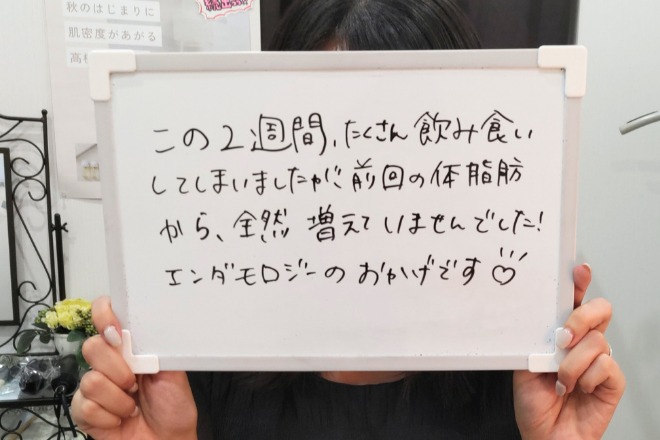 秋のはじまりに
肌密度があがる
高
この2週間、たくさん飲み食い
してしまいましたが、前回の体脂肪
から、全然増えていませんでした!
エンダモロジーのおかげです♡